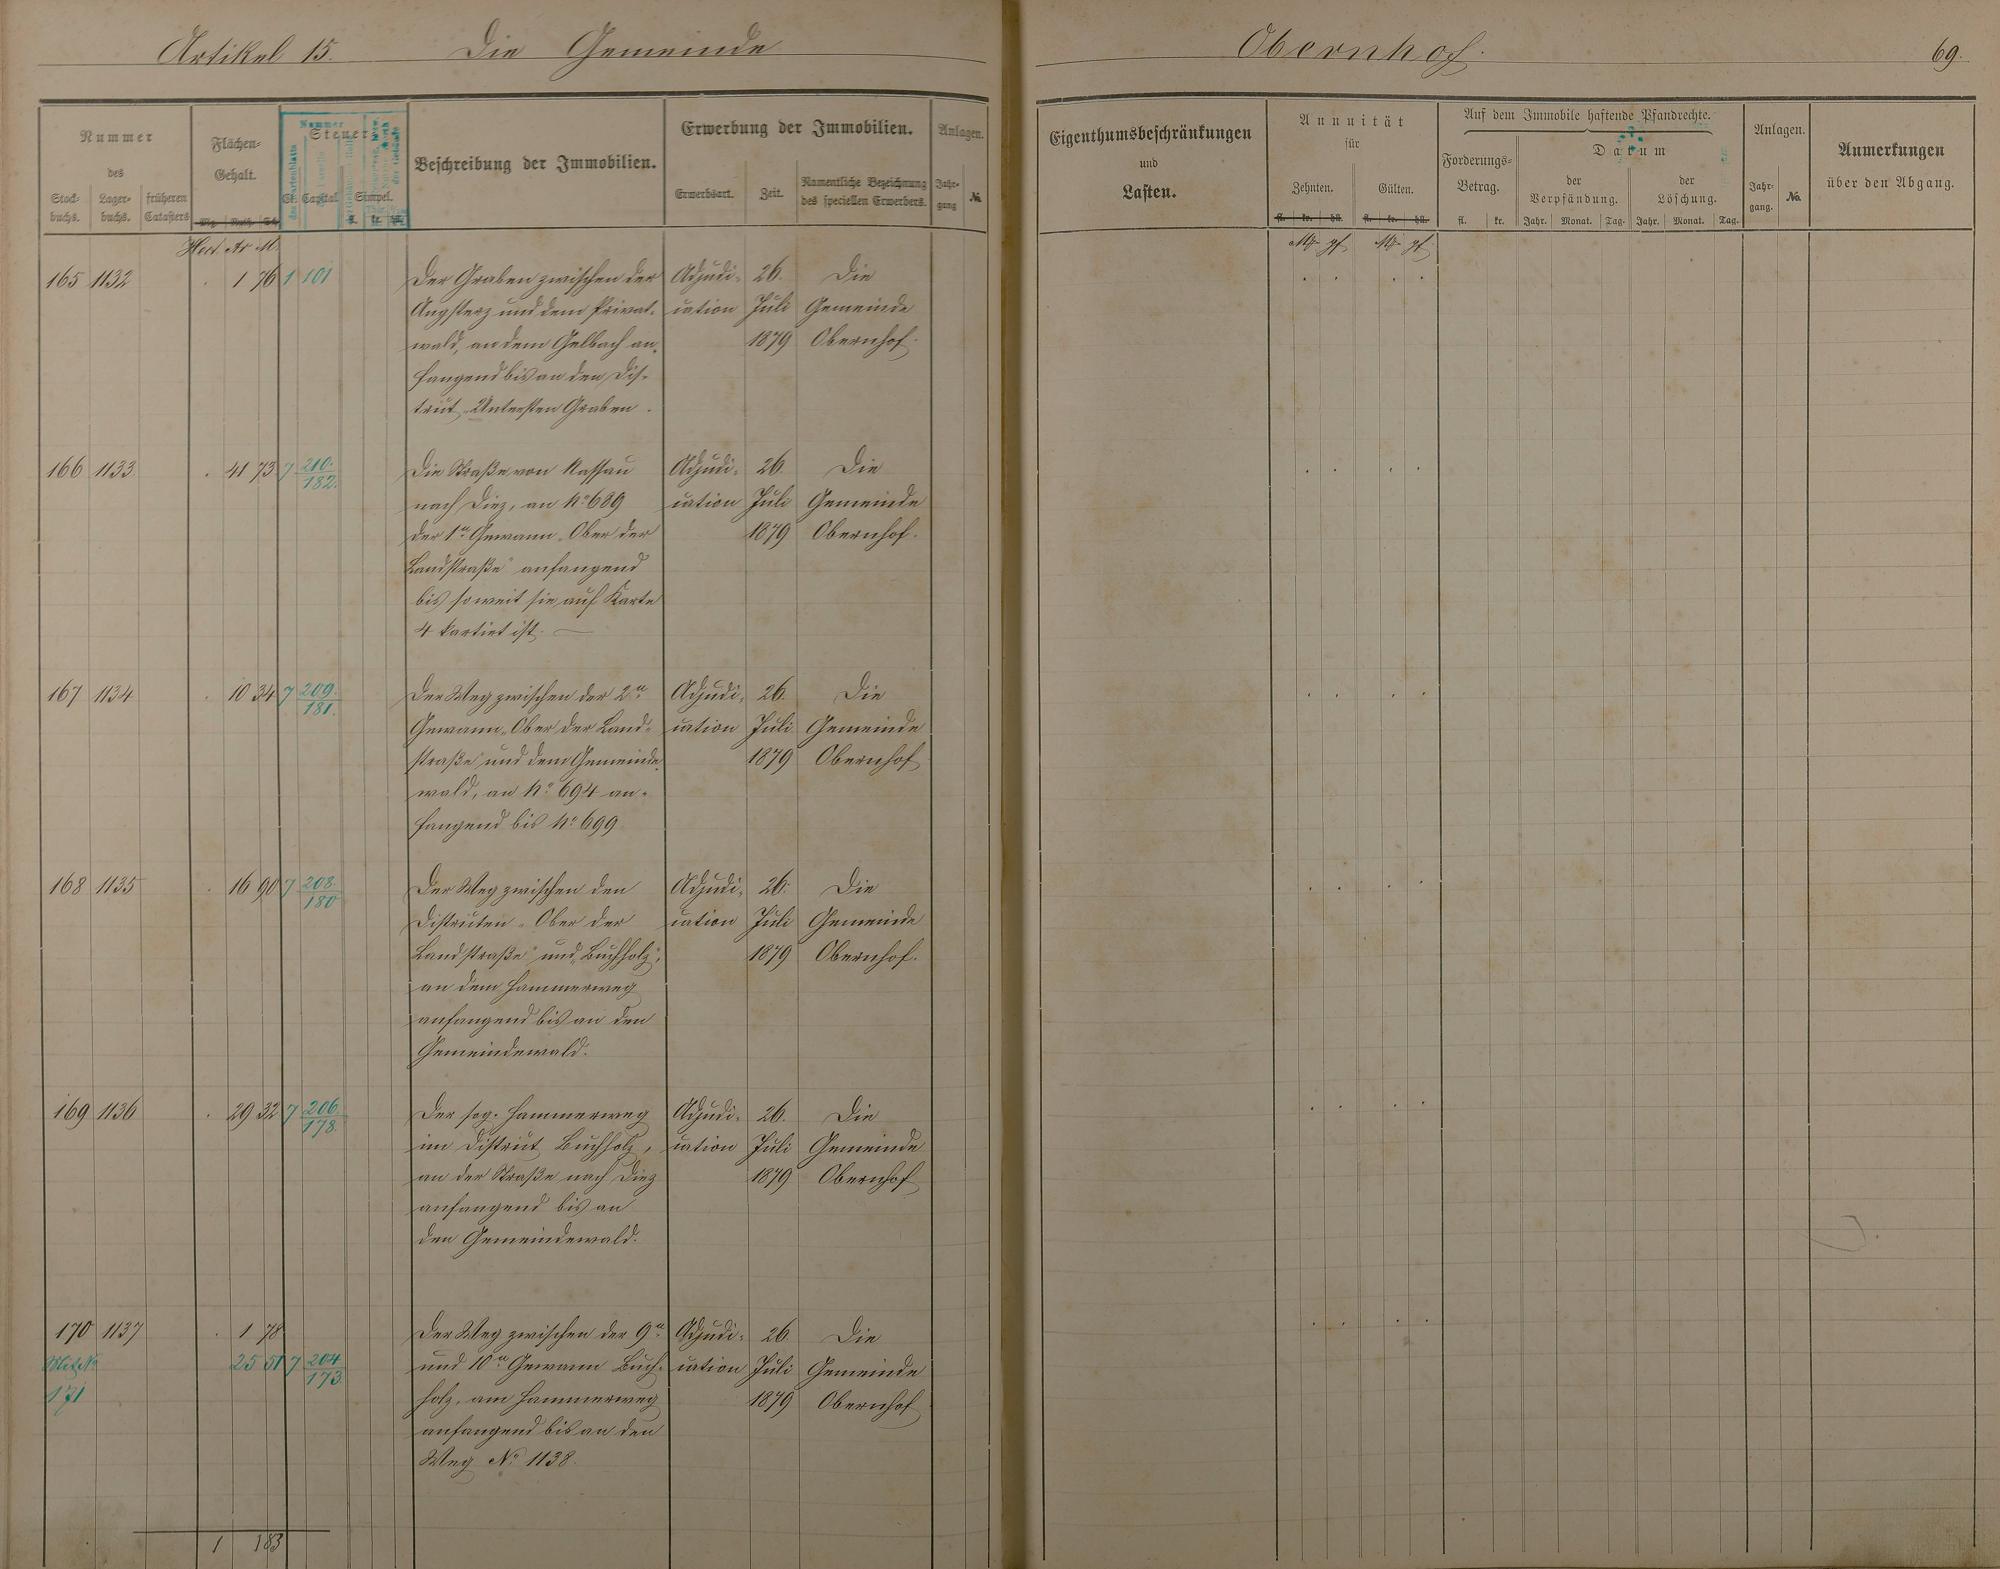 Artikel 15. Die Gemeinde
Obernhof.
69.
Nummer
des
Stock-
buchs.
Lager-
buchs.
früheren
Catasters
Flächen-
Gehalt.
Steuer
Capital
Simpel.
Beschreibung der Immobilien.
Erwerbung der Immobilien.
Erwerbsart.
Zeit.
Namentliche Bezeichnung
des speciellen Erwerbers.
Anlagen.
Jahr-
gang
№
Eigenthumsbeschränkungen
und
Lasten.
Annuität
für
Zehnten.
Gülten.
fl. kr. hll. fl. kr. hll.
Auf dem Immobile haftende Pfandrechte.
Forderungs-
Betrag.
fl. kr.
Datum
der
Verpfändung.
Jahr. Monat. Tag.
der
Löschung.
Jahr. Monat. Tag.
Anlagen.
Jahr-
gang.
No.
Anmerkungen
über den Abgang.
Hect. Ar M.
Mk pf Mk pf.
165 1132 . 1 76 1 101 Der Graben zwischen der Adjudi- 26. Die
Angsterz und dem Privat- cation Juli Gemeinde
wald, an dem Gelbach an- 1879 Obernhof.
fangend bis an den Dis-
trict „Untersten Graben.
166 1133. . 41 73 7 210. Die Straße von Nassau Adjudi- 26. Die
182.
nach Diez, an No 689 cation Juli Gemeinde
der 1n Gewann „Ober der 1879 Obernhof.
Landstraße" anfangend
bis soweit sie auf Karte
4 kartirt ist. —
167 1134 . 10 34 7 209. Der Weg zwischen der 2n Adjudi- 26. Die
181.
Gewann „Ober der Land- cation Juli Gemeinde
straße" und dem Gemeinde- 1879 Obernhof
wald, an No 694 an-
fangend bis No 699
168 1135 . 16 90 7 208. Der Weg zwischen den Adjudi- 26. Die
180
Districten „Ober der cation Juli Gemeinde
Landstraße" und „Buchholz", 1879 Obernhof.
an dem Hammerweg
anfangend bis an den
Gemeindewald.
169 1136 . 29 32 7 206. Der sog. Hammerweg Adjudi- 26. Die
178.
im District Buchholz, cation Juli Gemeinde
an der Straße nach Diez 1879 Obernhof
anfangend bis an
den Gemeindewald.
170 1137 . 1 78 Der Weg zwischen der 9n Adjudi- 26. Die
Mit No 25 51 7 204 und 10n Gewann Buch- cation Juli Gemeinde
171 173. holz, am Hammerweg 1879 Obernhof
anfangend bis an den
Weg No 1138.
1 183